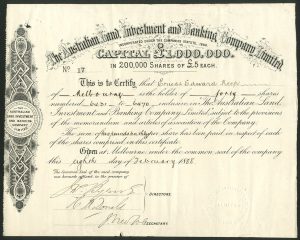 The Australian Land, Investment and Banking Company Limited.
INCORPORATED UNDER THE COMPANIES STATUTE, 1864.
CAPITAL £1,000,000.
IN 200,000 SHARES OF £5 EACH.
No 17
This is to Certify that Edward
of Melbourne is the holder of forty shares
numbered 6431 to 6470 inclusive in The Australian Land,
Investment and Banking Company Limited, subject to the provisions
of the memorandum and articles of association of the Company.
The sum of per share has been paid in respect of each
of the shares comprised in this certificate.
Given at Melbourne under the common seal of the company
this eighth day of February 1888
The Common Seal of the said company
was hereunto affixed in the presence of
DIRECTORS.
SECRETARY.
THE AUSTRALIAN LAND INVESTMENT AND BANKING COMPANY LIMITED